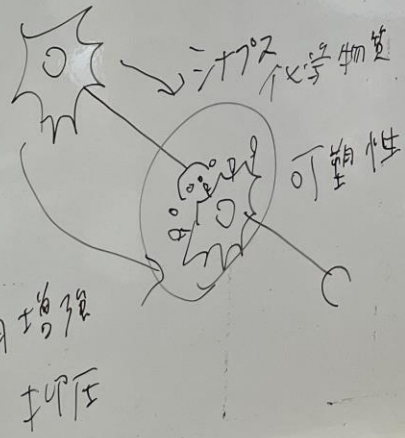 シナプス
化学物質
可塑性
増強
抑圧